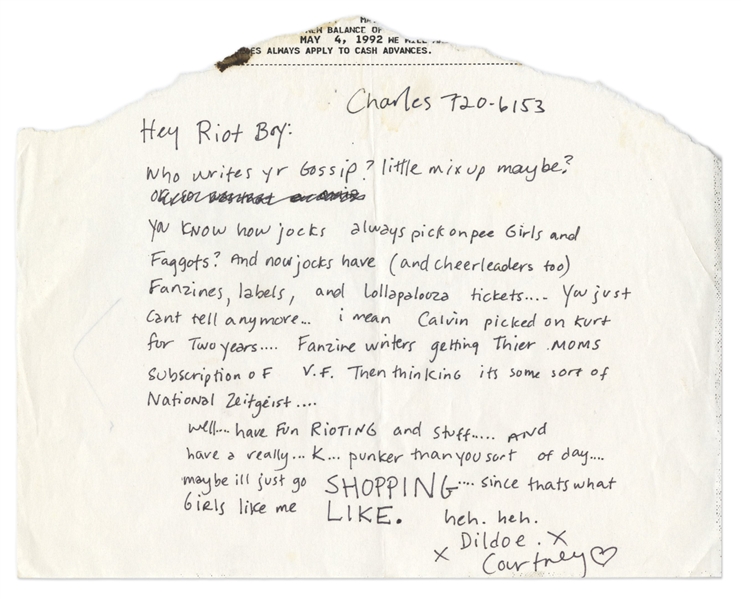 NEW BALANCE OF
MAY 4, 1992 WE WILL
ES ALWAYS APPLY TO CASH ADVANCES.
Charles 720-6153
Hey Riot Boy:
Who writes yr Gossip? little mixup maybe?
You know how jocks always pick on pee Girls and
Faggots? And now jocks have (and cheerleaders too)
Fanzines, labels, and Lollapalouza tickets.... You just
cant tell anymore... i mean Calvin picked on Kurt
for Two years.... Fanzine writers getting Thier MOMS
Subscription of V.F. Then thinking its some sort of
National Zeitgeist....
well... have Fun RIOTING and stuff..... AND
have a really... K... punker than you sort of day....
maybe ill just go SHOPPING.... since thats what
Girls like me LIKE. heh. heh.
Dildoe. X
x Courtney♡